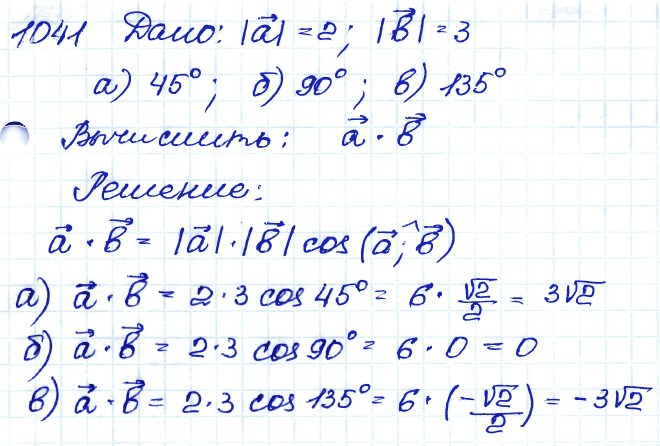 1041 Дано: |a⃗| = 2; |b⃗| = 3
а) 45°; б) 90°; в) 135°
Вычислить: a⃗ · b⃗
Решение:
a⃗ · b⃗ = |a⃗| · |b⃗| cos (a⃗; ^b⃗)
а) a⃗ · b⃗ = 2 · 3 cos 45° = 6 · √2/2 = 3√2
б) a⃗ · b⃗ = 2 · 3 cos 90° = 6 · 0 = 0
в) a⃗ · b⃗ = 2 · 3 cos 135° = 6 · (-√2/2) = -3√2